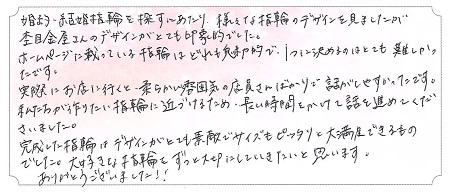 婚約・結婚指輪を探すにあたり、様々な指輪のデザインを見ましたが
杢目金屋さんのデザインがとても印象的でした。
ホームページに載っている指輪はどれも魅力的で、1つに決めるのはとても難しかっ
たです。
実際にお店に行くと、柔らかい雰囲気の店員さんばかりで話がしやすかったです。
私たちが作りたい指輪に近づけるため、長い時間をかけて話を進めてくだ
さいました。
完成した指輪はデザインがとても素敵でサイズもピッタリと大満足できるもの
でした。大好きな指輪をずっと大切にしていきたいと思います。
ありがとうございました!!